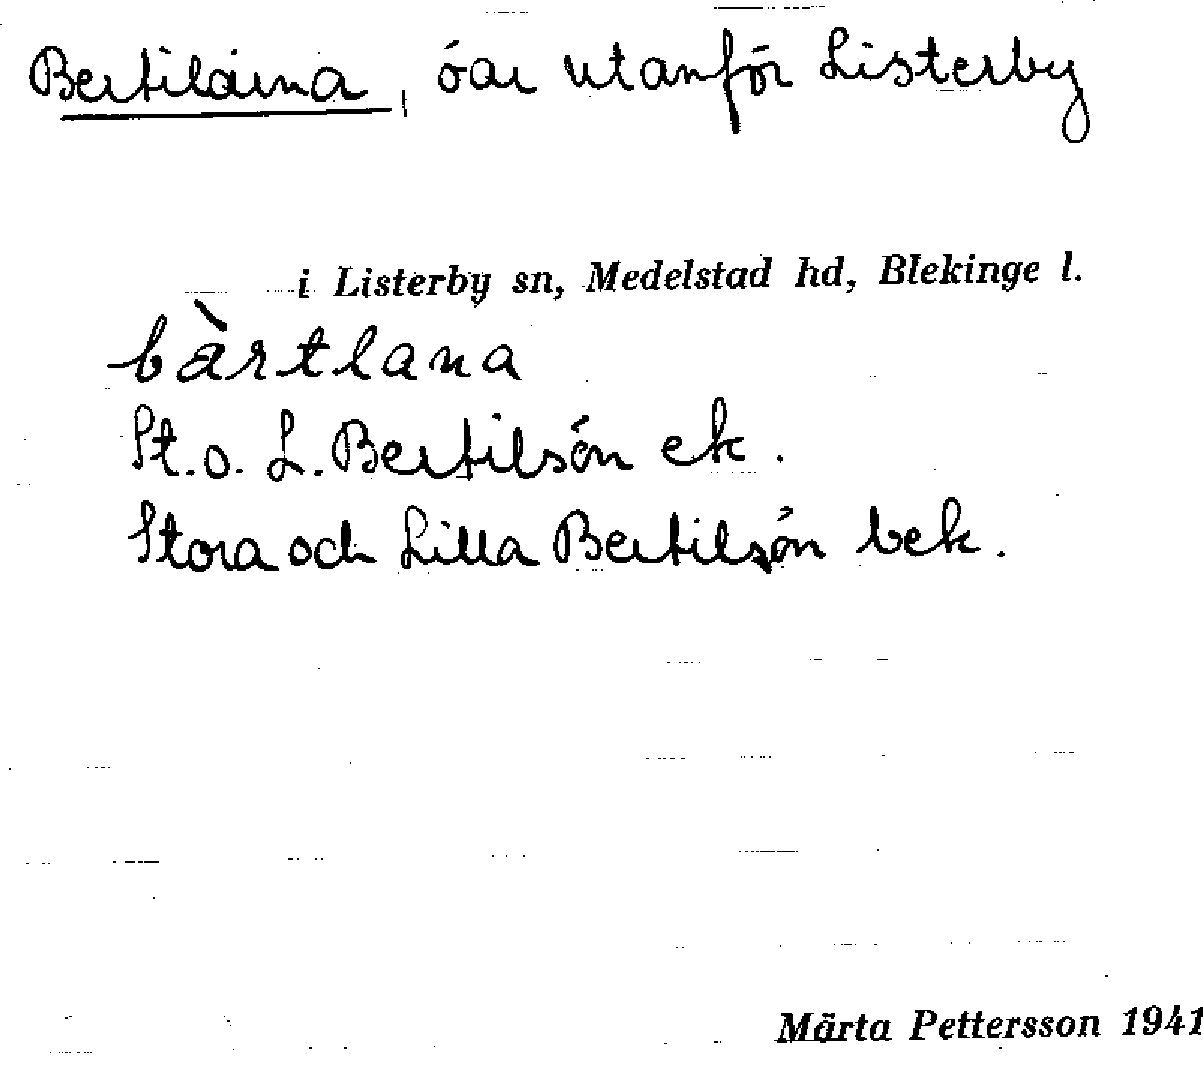 Bertilöarna, öar utanför Listerby
i Listerby sn, Medelstad hd, Blekinge l.
bàrtlana
St. o. L. Bertilsön ek.
Stora och Lilla Bertilsön bek.
Märta Pettersson 1941